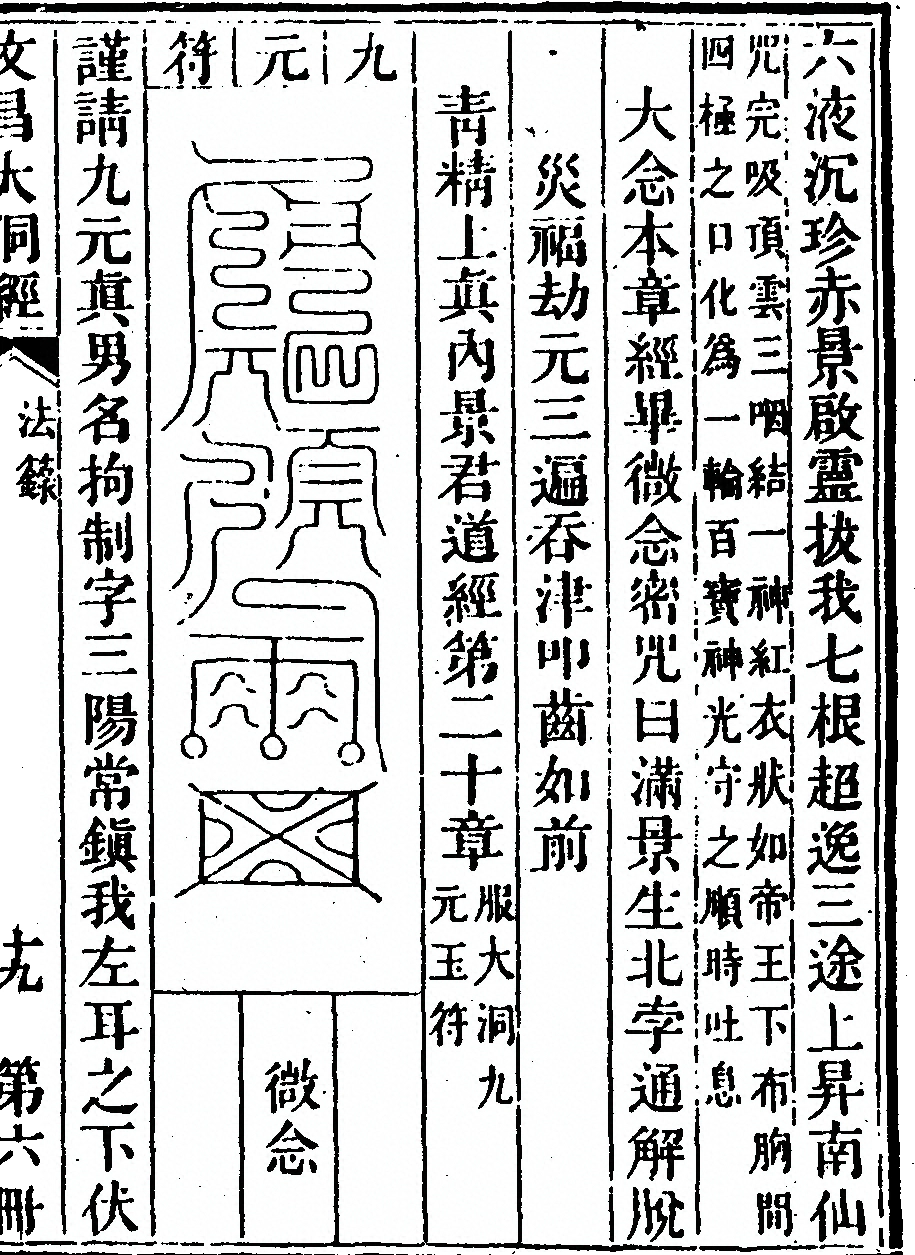 六液沉珍赤景啟靈拔我七根超逸三途上昇南仙
咒完吸頂雲三咽結一神紅衣狀如帝王下布胸間
四極之口化為一輪百寶神光守之順時吐息
大念本章經畢微念密咒曰滿景生北孛通解脫
災福劫元三遍吞津叩齒如前
青精上眞內景君道經第二十章
服大洞九
元玉符
九元符
微念
謹請九元眞男名拘制字三陽常鎭我左耳之下伏
文昌大洞經
法籙
十九
第六冊